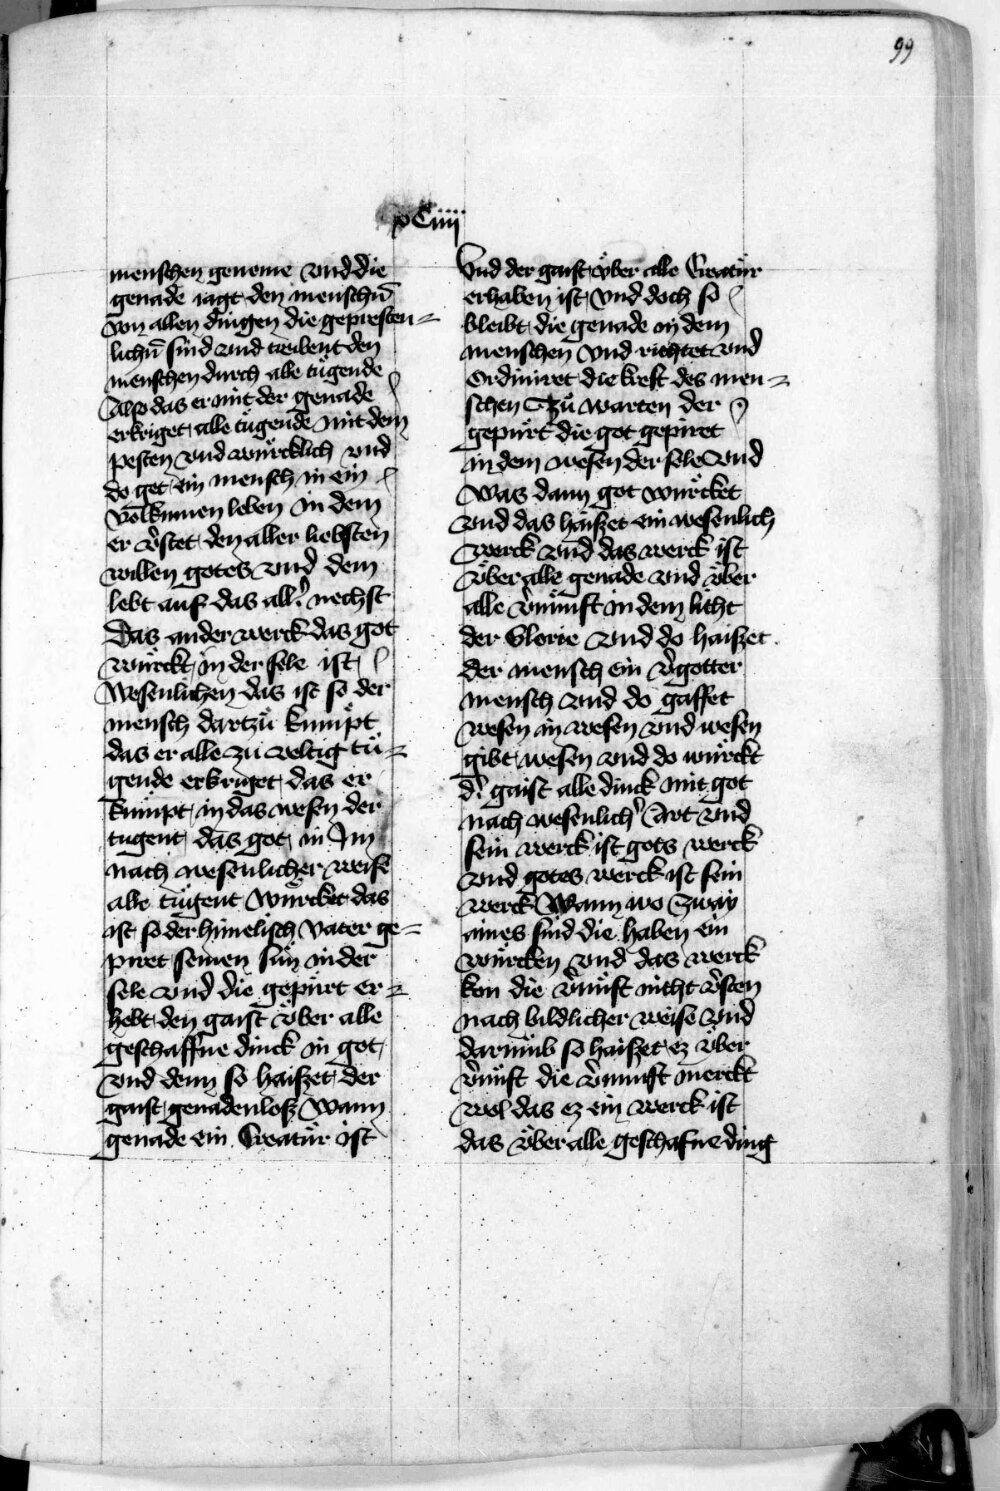 99
xCiiii
menschen geneme vnd die
genade iagt den menschen̄
von allen dingen die gepresten=
lichn̄ sind vnd treibent den
menschen durch alle tügende
Also das er mit der genade
erkriget alle tügende mit dem
pesten vnd würcklich vnd
do get ein mensch in ein
volkumen leben in dem
er v̾stet den aller liebsten
willen gotes vnd dem
lebt auf das all̾ nechst
Das ander werck das got
würckt in der sele ist
Wesenlichen das ist so der
mensch dartzů kumpt
das er alle zu veltig tü=
gende erkriget das er
kumpt in das wesen der
tugent das got in Im
nach wesenlicher weise
alle tügent würcket das
ist so der himelisch vater ge=
piret seinen sun in der
sele vnd die gepürt er=
hebt den gaist über alle
geschaffne dinck in got
vnd denn so haiszet der
gaist genadenlosz Wann
genade ein Creatür ist
Vnd der gaist über alle Creatür
erhaben ist vnd doch so
bleibt die genade in dem
menschen vnd richtet vnd
Ordiniret die kreft des men=
schen Tzů warten der
gepürt die got gepiret
in dem wesen der sele vnd
Was dann got würcket
vnd das haiszet ein wesenlich
Werck vnd das werck ist
über alle genade vnd über
alle v̾nünft in dem licht
der Glorie vnd do haiszet
der mensch ein v̾gotter
mensch vnd do gaffet
wesen in wesen vnd wesen
gibt wesen vnd do würckt
d̾ gaist alle dinck mit got
nach wesenlich̾ Art vnd
sein werck ist gots werck
vnd gotes werck ist sein
werck Wann wo Zway
aines sind die haben ein
würcken vnd das werck
kon die v̾nuft nicht v̾sten
nach bildlicher weise vnd
darumb so haiszet ez über
v̾nuft die v̾nunft merckt
wol das ez ein werck ist
das über alle geschafne ding